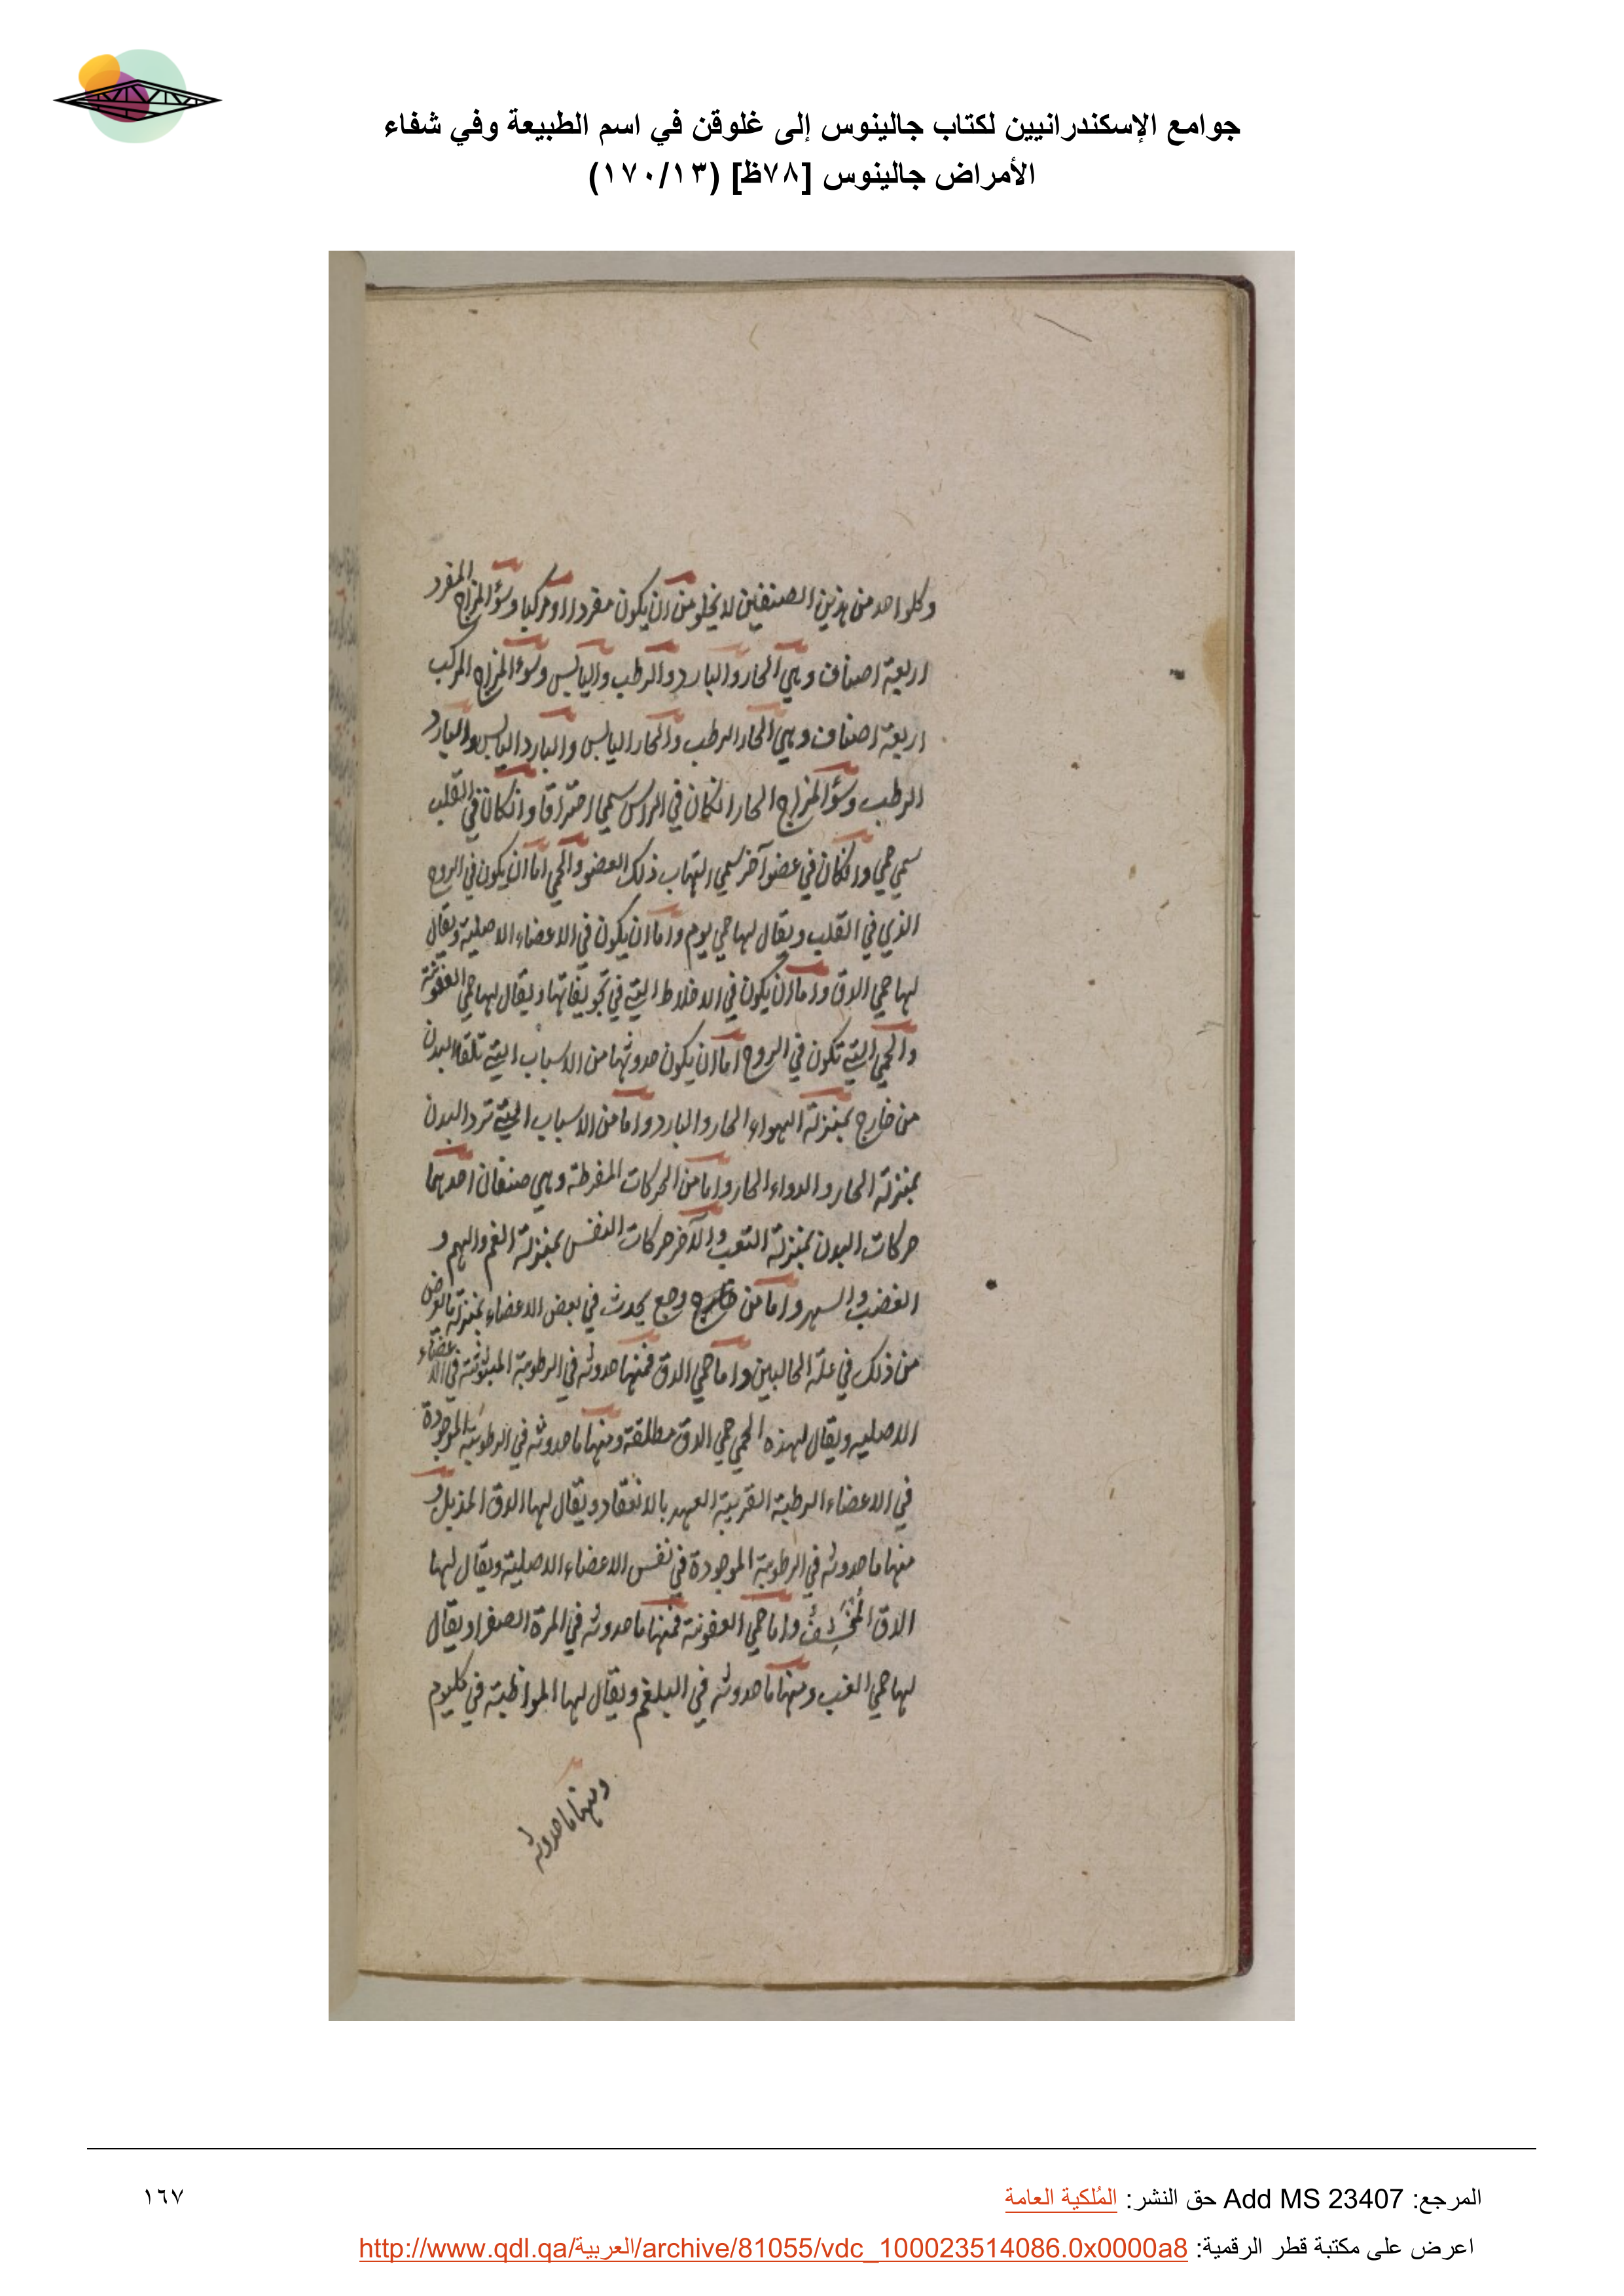 جوامع الإسكندرانيين لكتاب جالينوس إلى غلوقن في اسم الطبيعة وفي شفاء
الأمراض جالينوس [٧٨ظ] (١٧٠/١٣)
وكلواحد من هذين الصنفين لا يخلو من ان يكون مفردا او مركبا وسؤ المزاج المفرد
اربعة اصناف وهي الحار والبارد والرطب واليابس وسوء المزاج المركب
اربعة اصناف وهي الحار الرطب والحار اليابس والبارد اليابس والبارد
الرطب وسؤ المزاج الحار انكان في الراس سمي احتراقا وانكان في القلب
سمي حمي وانكان في عضو آخر سمي التهاب ذلك العضو والحمي اما ان يكون في الروح
الذي في القلب ويقال لها حمي يوم واما ان يكون في الاعضاء الاصلية ويقال
لها حمي الدق واما ان يكون في الاخلاط التي في تجويفاتها ويقال لها حمي العفونة
والحمي التي تكون في الروح اما ان يكون حدوثها من الاسباب التي تلقا البدن
من خارج بمنزلة الهواء الحار والبارد واما من الاسباب التي ترد البدن
بمنزلة الحار والدواء الحار واما من الحركات المفرطة وهي صنفان احدهما
حركات البدن بمنزلة التعب والآخر حركات النفس بمنزلة الغم والهم و
الغضب والسهر واما من وجع يحدث في بعض الاعضاء بمنزلة ما يعرض
من ذلك في علة الحالبين واما حمي الدق فمنها حدوثه في الرطوبة المبثوثة في الاعضاء
الاصليه ويقال لهذه الحمي حمي الدق مطلقة ومنها ما حدوثه في الرطوبة الموجودة
في الاعضاء الرطبة القريبة العهد بالانعقاد ويقال لها الدق المذبل و
منها ما حدوثه في الرطوبة الموجودة في نفس الاعضاء الاصلية ويقال لها
الدق واما حمي العفونة فمنها ما حدوثه في المرة الصفرا ويقال
لها حمي الغب ومنها ما حدوثه في البلغم ويقال لها المواظبة في كليوم
ومنها ما حدوثه
المرجع: Add MS 23407 حق النشر: المُلكية العامة
١٦٧
اعرض على مكتبة قطر الرقمية: http://www.qdl.qa/العربية/archive/81055/vdc_100023514086.0x0000a8